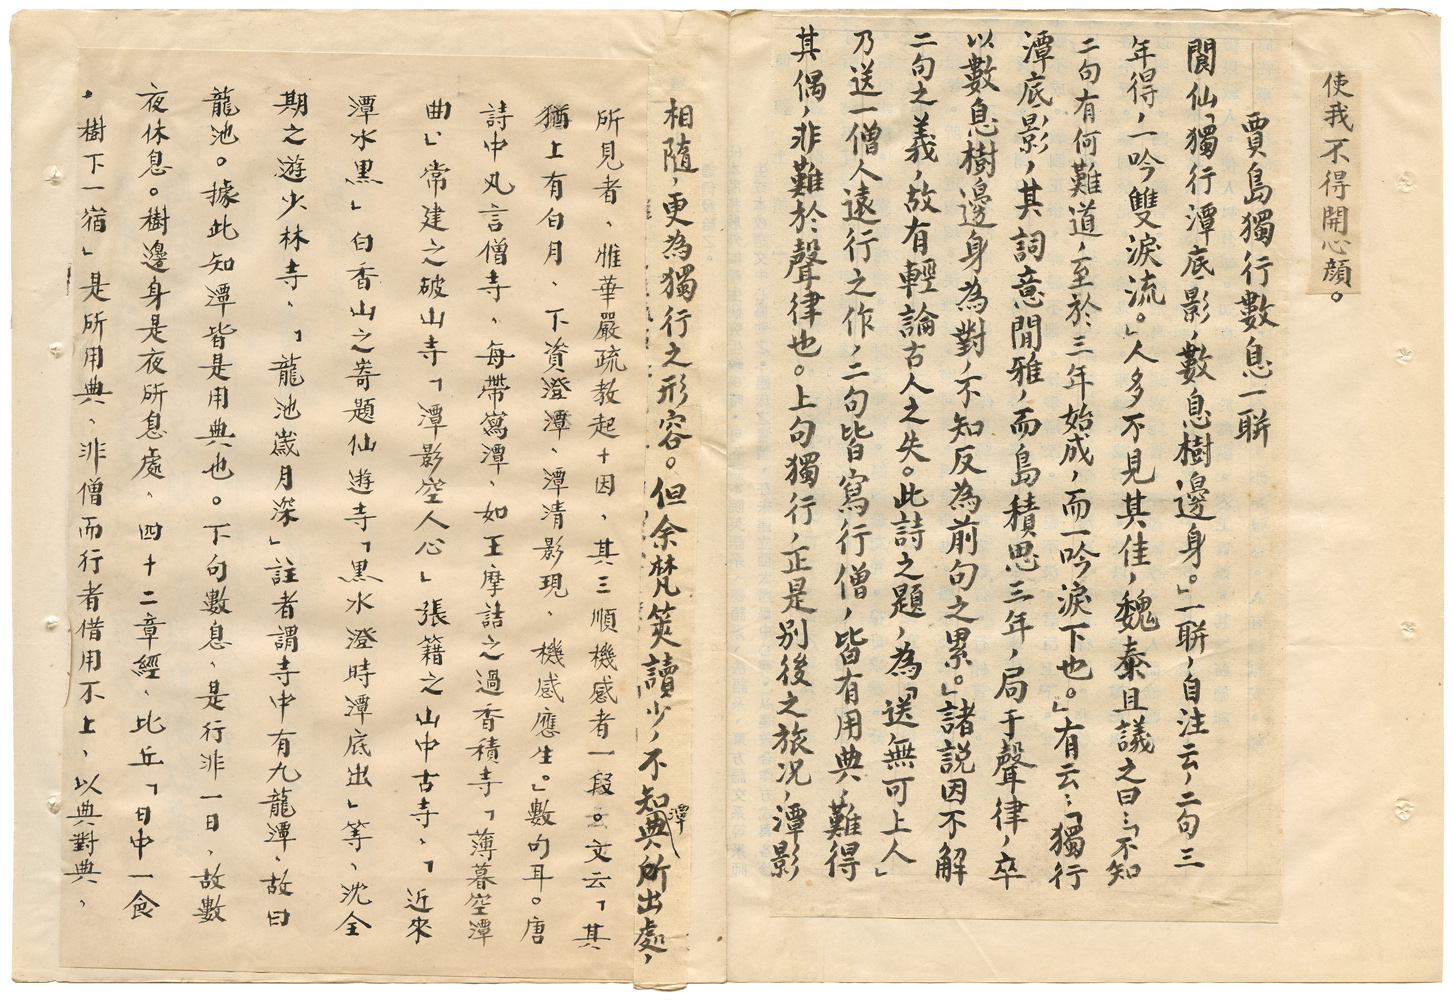 使我不得開心顏。
賈島獨行數息一聯
閬仙「獨行潭底影，數息樹邊身。」一聯，自注云，二句三
年得，一吟雙淚流。」人多不見其佳，魏泰且議之曰：「不知
二句有何難道，至於三年始成，而一吟淚下也。」有云：「獨行
潭底影，其詞意閒雅，而島積思三年，局于聲律，卒
以數息樹邊身為對，不知反為前句之累。」諸說因不解
二句之義，故有輕論古人之失。此詩之題，為「送無可上人」
乃送一僧人遠行之作，二句皆寫行僧，皆有用典，難得
其偶，非難於聲律也。上句獨行，正是別後之旅況，潭影
相隨，更為獨行之形容。但余梵筴讀少，不知潭典所出處，
所見者、惟華嚴疏教起十因、其三順機感者一段。文云「其
猶上有白月、下資澄潭、潭清影現、機感應生。」數句耳。唐
詩中凡言僧寺、每帶寫潭、如王摩詰之過香積寺「薄暮空潭
曲」、常建之破山寺「潭影空人心」張籍之山中古寺、「近來
潭水黑」白香山之寄題仙遊寺「黑水澄時潭底出」等、沈佺
期之遊少林寺、「龍池歲月深」註者謂寺中有九龍潭、故曰
龍池。據此知潭皆是用典也。下句數息、是行非一日、故數
夜休息。樹邊身是夜所息處、四十二章經、比丘「日中一食
，樹下一宿」是所用典、非僧而行者借用不上、以典對典、